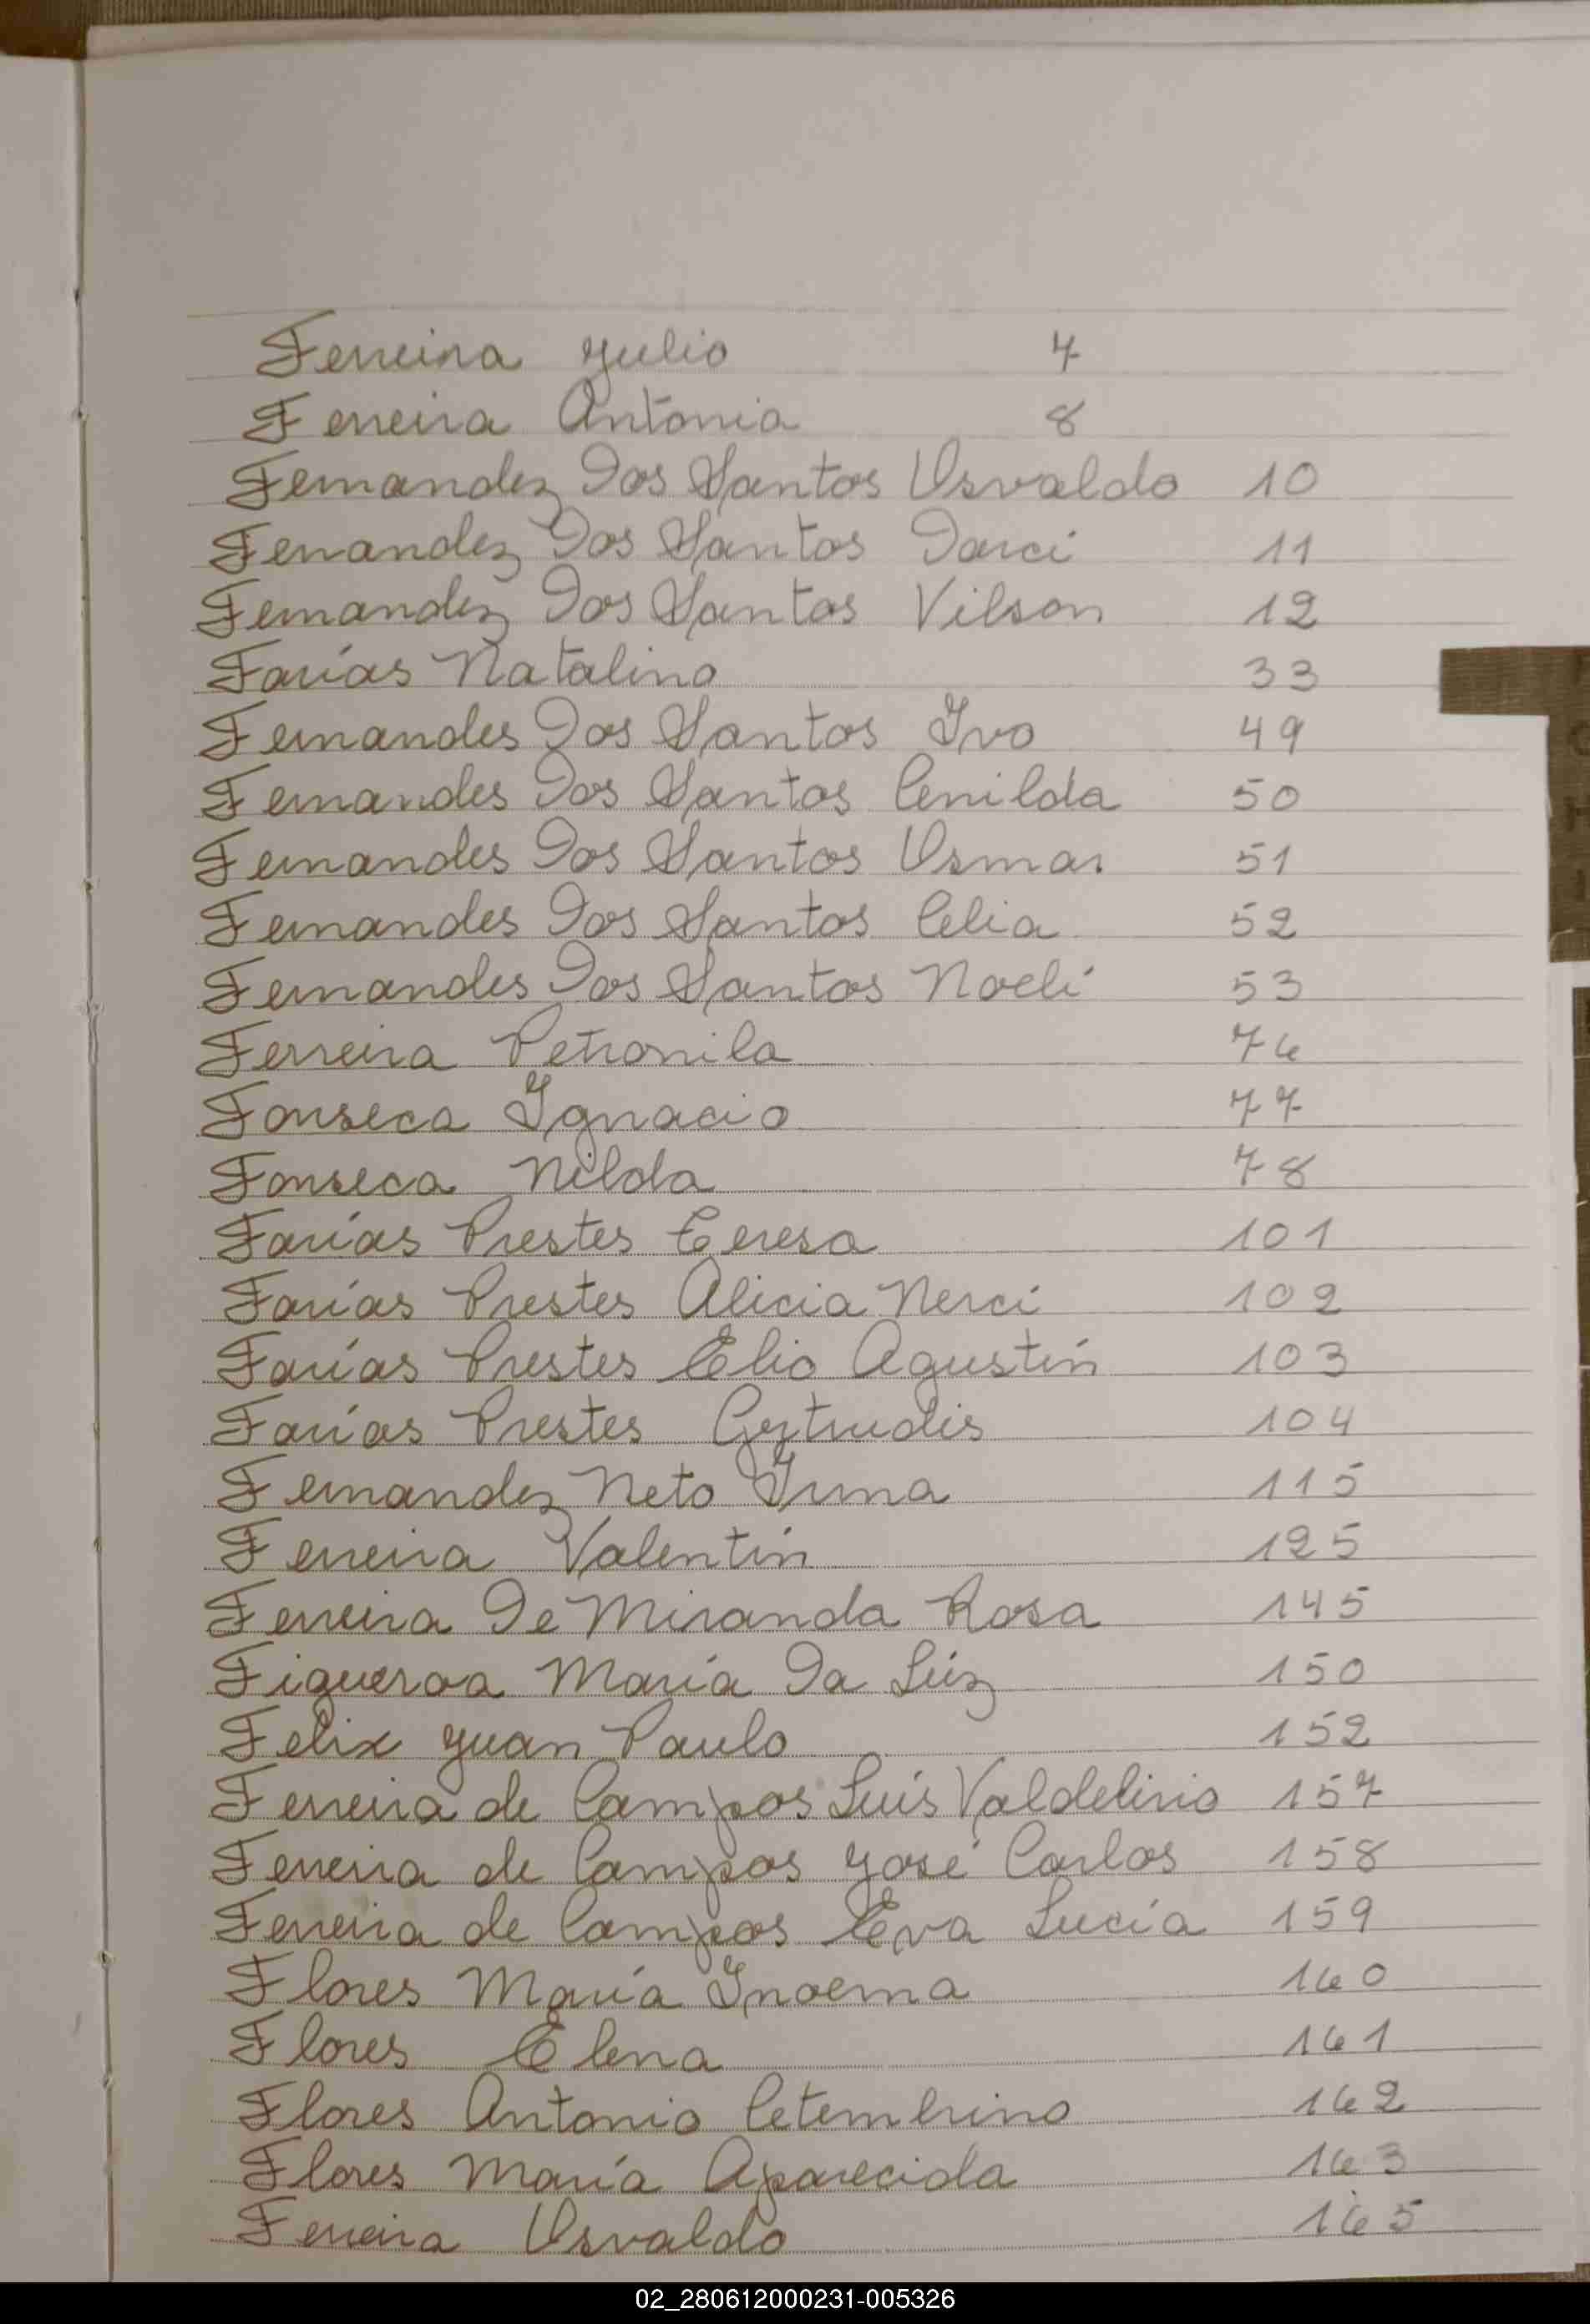 Ferreira Julio 7
Ferreira Antonia 8
Fernandez Dos Santos Osvaldo 10
Fernandez Dos Santos Darci 11
Fernandez Dos Santos Vilson 12
Farías Natalino 33
Fernandes Dos Santos Ivo 49
Fernandes Dos Santos Cenilda 50
Fernandes Dos Santos Osmar 51
Fernandes Dos Santos Celia 52
Fernandes Dos Santos Noelí 53
Ferreira Petronila 76
Fonseca Ignacio 77
Fonseca Nilda 78
Farías Prestes Teresa 101
Farías Prestes Alicia Nerci 102
Farías Prestes Elio Agustín 103
Farías Prestes Gertrudis 104
Fernandez Neto Irma 115
Ferreira Valentín 125
Ferreira De Miranda Rosa 145
Figueroa María Da Lúz 150
Felix Juan Paulo 152
Ferreira de Campos Luís Valdelirio 157
Ferreira de Campos José Carlos 158
Ferreira de Campos Eva Lucía 159
Flores María Inoema 160
Flores Elena 161
Flores Antonio Cetembrino 162
Flores María Aparecida 163
Ferreira Osvaldo 165
02_280612000231-005326